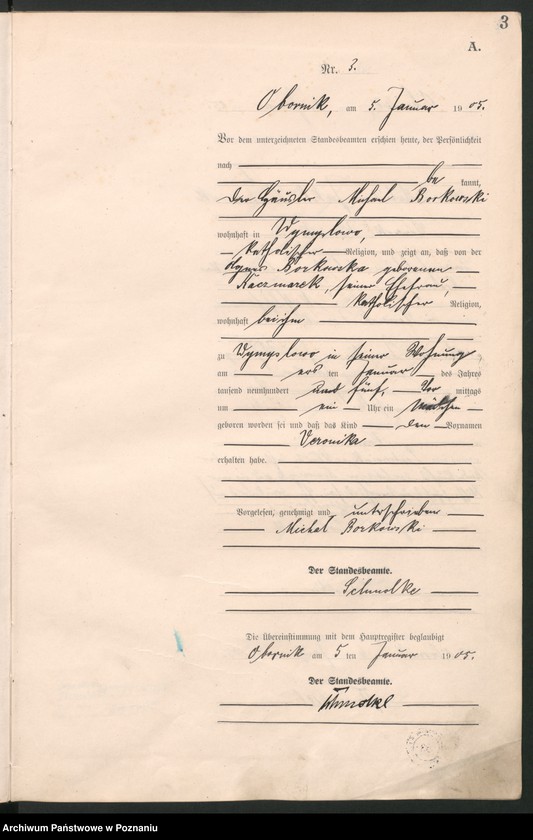 3
A.
Nr. 3.
Obornik, am 5. Januar 1905.
Vor dem unterzeichneten Standesbeamten erschien heute, der Persönlichkeit
nach
be kannt,
der Häusler Michael Borkowski
wohnhaft in Wymyslowo,
katholischer Religion, und zeigt an, daß von der
Agnes Borkowska geborenen
Kaczmarek, seiner Ehefrau,
katholischer Religion,
wohnhaft bei ihm
zu Wymyslowo in seiner Wohnung
am ersten Januar des Jahres
tausend neunhundert und fünf, Vor mittags
um ein Uhr ein Mädchen
geboren worden sei und daß das Kind den Vornamen
Veronika
erhalten habe.
Vorgelesen, genehmigt und unterschrieben
Michal Borkowski
Der Standesbeamte.
Schmolke
Die Übereinstimmung mit dem Hauptregister beglaubigt
Obornik am 5 ten Januar 1905.
Der Standesbeamte.
Schmolke
Archiwum Państwowe w Poznaniu